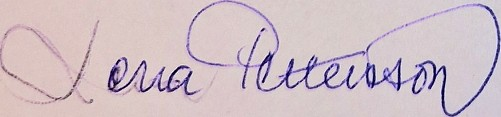 Lena Pettersson